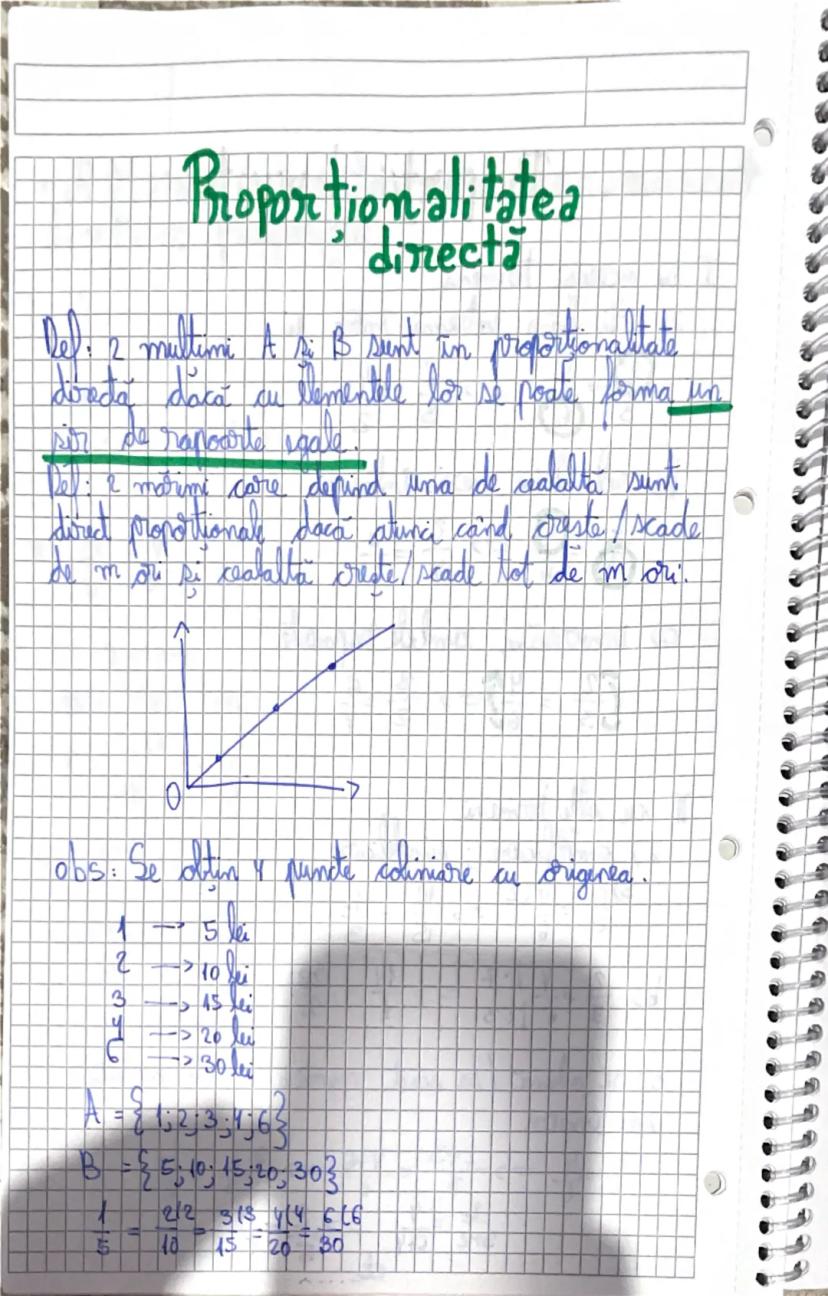 Proporționalitatea
directă
Def: 2 mulțimi A și B sunt în proporționalitate
directă dacă cu elementele lor se poate forma un
șir de rapoarte egale.
Def: 2 mărimi care depind una de cealaltă sunt
direct proporționale dacă atunci când crește/scade
de m ori și cealaltă crește/scade tot de m ori.
O
obs: Se obțin 4 puncte coliniare cu originea.
1 → 5 lei
2 → 10 lei
3 → 15 lei
4 → 20 lei
6 → 30 lei
A = {1; 2; 3; 4; 6}
B = {5; 10; 15; 20; 30}
1/5 = 2(2/10 = 3(3/15 = 4(4/20 = 6(6/30